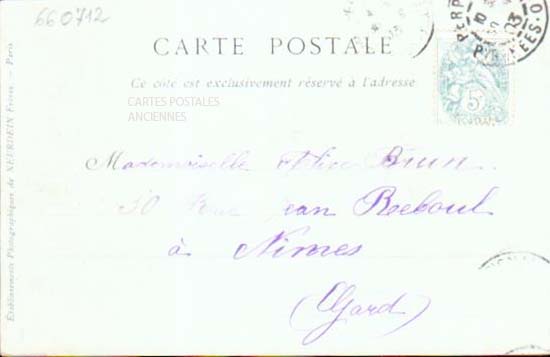 660712
CARTE POSTALE
Ce côté est exclusivement réservé à l'adresse
CARTES POSTALES
ANCIENNES
5
Mademoiselle Alice Brun
30 Rue Jean Reboul
à
Nimes
(Gard)
Établissements Photographiques de NEURDEIN Frères. — Paris.